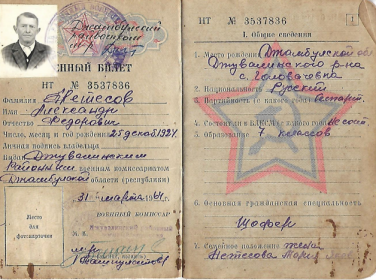 Джамбулский
НЫЙ БИЛЕТ
НТ № 3537836
Фамилия Нетесов
Имя Александр
Отчество Федорович
Число, месяц и год рождения 25 декаб. 1924
Личная подпись владельца
Выдан Джувалинским
Районным военным комиссариатом
Джамбулской области (республики)
31 марта 1964 г.
Место
для
фотокарточки
ВОЕННЫЙ КОМИССАР
М. П.
НТ № 3537836
1
I. Общие сведения
1. Место рождения Джамбулская об
Джувалинского р-на
с.
2. Национальность Русский
3. Партийность (с какого года)
4. Состоит ли в ВЛКСМ (с какого года) Не сост.
5. Образование 7 классов
6. Основная гражданская специальность
Шофер
7. Семейное положение жена
Нетесова Мария